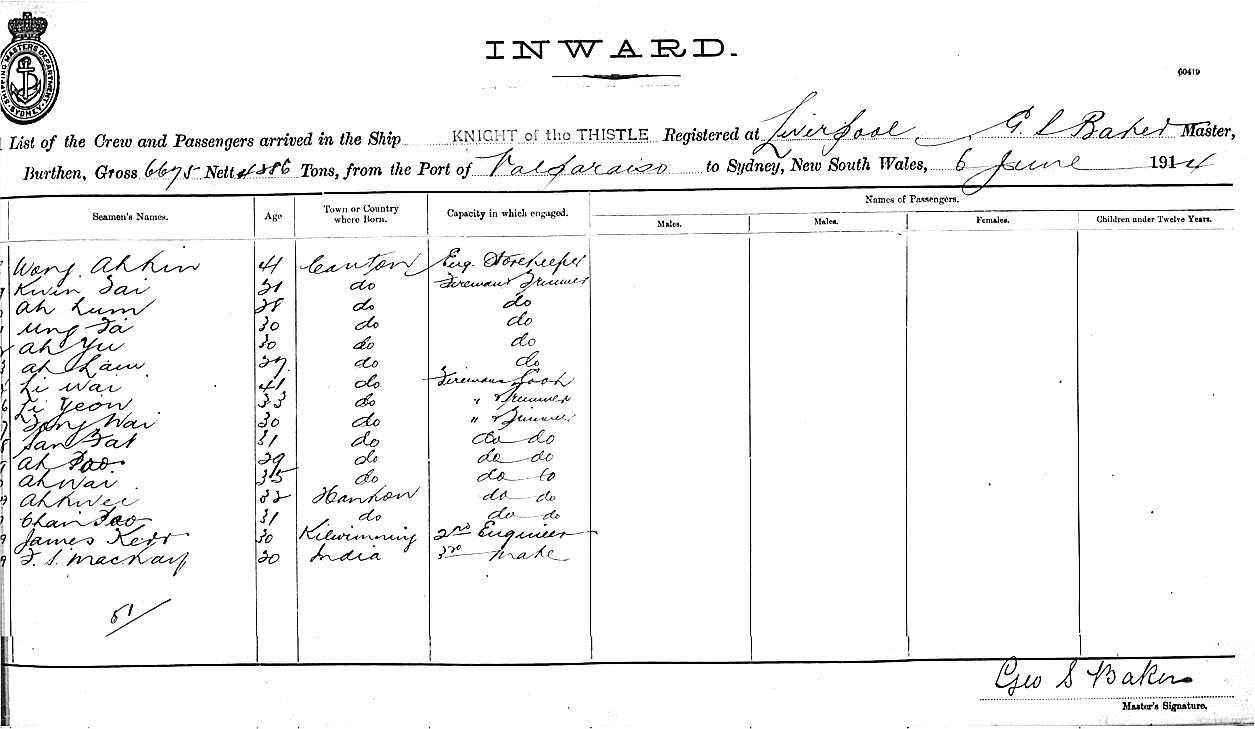 SHIPPING MASTERS DEPARTMENT SYDNEY
INWARD.
60419
List of the Crew and Passengers arrived in the Ship KNIGHT of the THISTLE Registered at Liverpool, G. S Baker Master,
Burthen, Gross 6675 Nett 4386 Tons, from the Port of Valparaiso to Sydney, New South Wales, 6 June 1914
Names of Passengers.
Seamen's Names. Age Town or Country where Born. Capacity in which engaged. Males. Males. Females. Children under Twelve Years.
Wong Ahkin 41 Canton Eng. Storekeeper
Kwin Tai do Fireman Trimmer
Ah Lum 28 do do
Ung Ta 30 do do
Ah Yu 30 do do
Ah Lam 27 do do
Li Wai 41 do Firemans Cook
Li Yeon 33 do " Trimmer
Tong Wai 30 do " Trimmer
San Tat 31 do do do
Ah 29 do do do
Ah Wai 35 do do do
Ah Kwee 32 Hankow do do
Chan 31 do do do
James Kerr 30 Kilwinning 2nd Engineer
F. S. Mackay 20 India 3rd Mate
51/
Geo S Baker
Master's Signature.